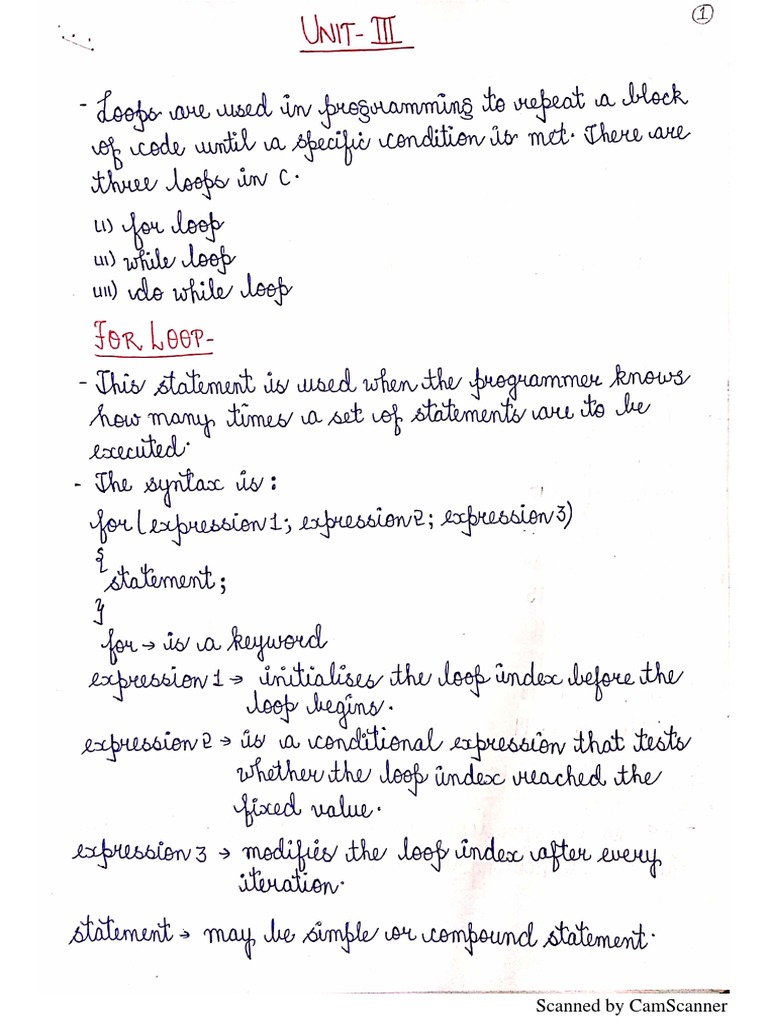 1
UNIT-III
- Loops are used in programming to repeat a block
of code until a specific condition is met. There are
three loops in C.
(i) for loop
(ii) while loop
(iii) do while loop
FOR LOOP-
- This statement is used when the programmer knows
how many times a set of statements are to be
executed.
- The syntax is:
for(expression1; expression2; expression3)
{
statement;
}
for → is a keyword
expression 1 → initialises the loop index before the
loop begins.
expression 2 → is a conditional expression that tests
whether the loop index reached the
fixed value.
expression 3 → modifies the loop index after every
iteration.
statement → may be simple or compound statement.
Scanned by CamScanner